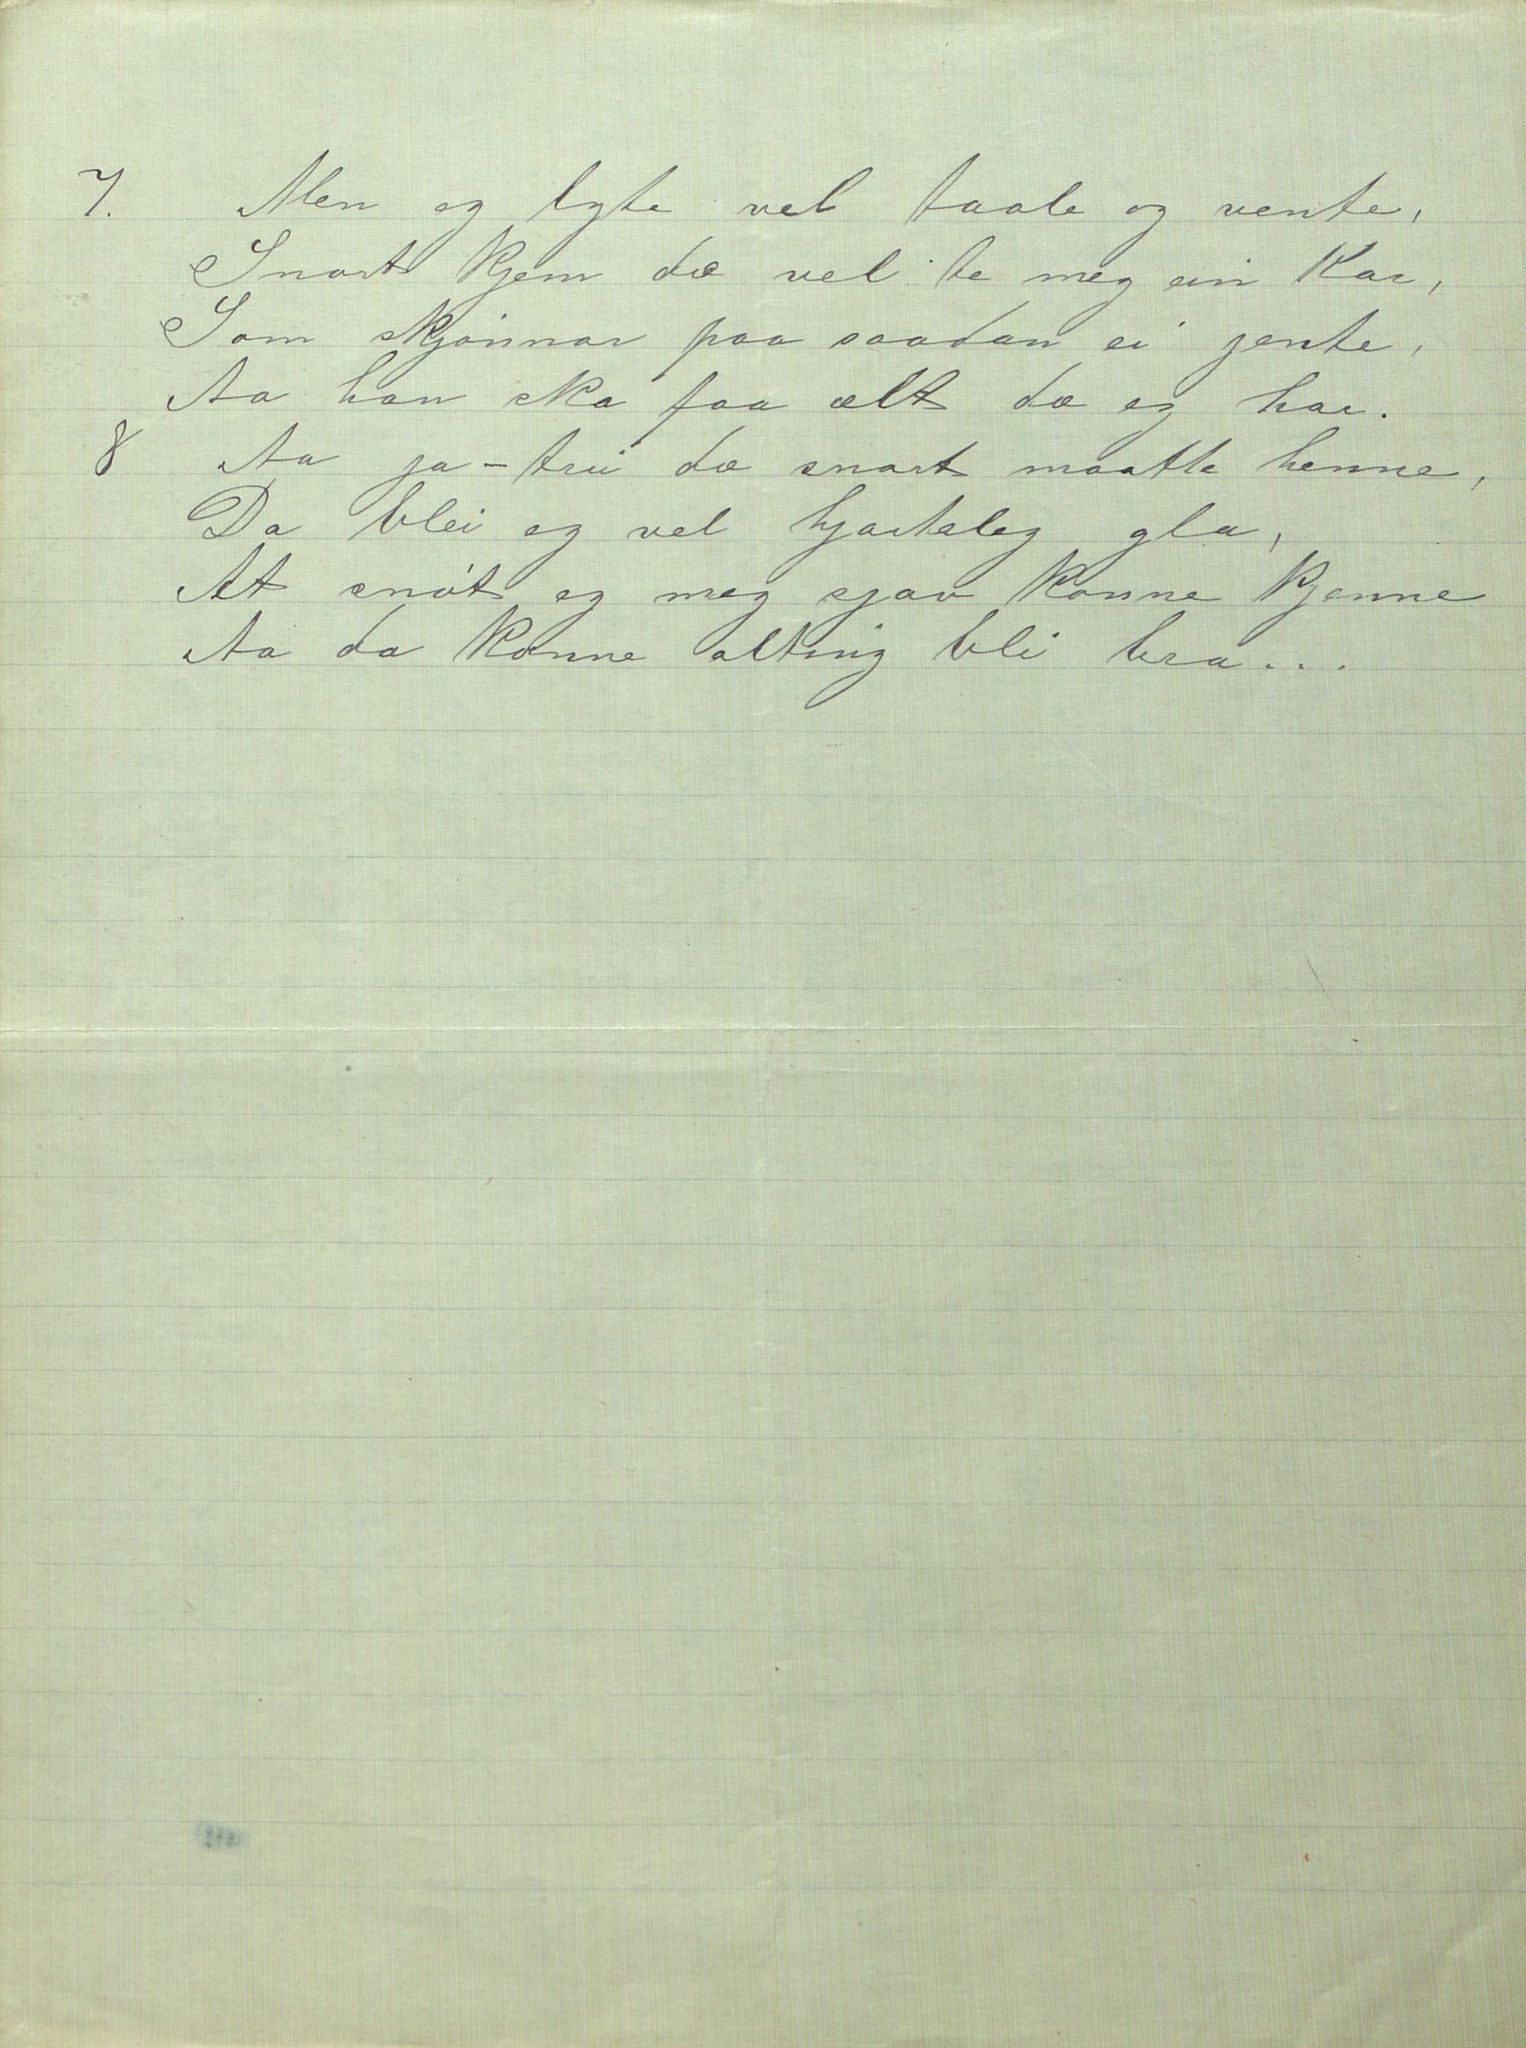 7. Men eg lyte vel taale og vente,
Snart kjem dæ vel te meg ein kar,
Som skjønnar paa saadan ei jente,
Aa han ska faa ælt dæ eg har.
8 Aa ja - tru dæ snart maatte henne,
Da blei eg vel hjarteleg gla,
At snøt eg meg sjøv konne kjenne
Aa da konne alting bli bra...